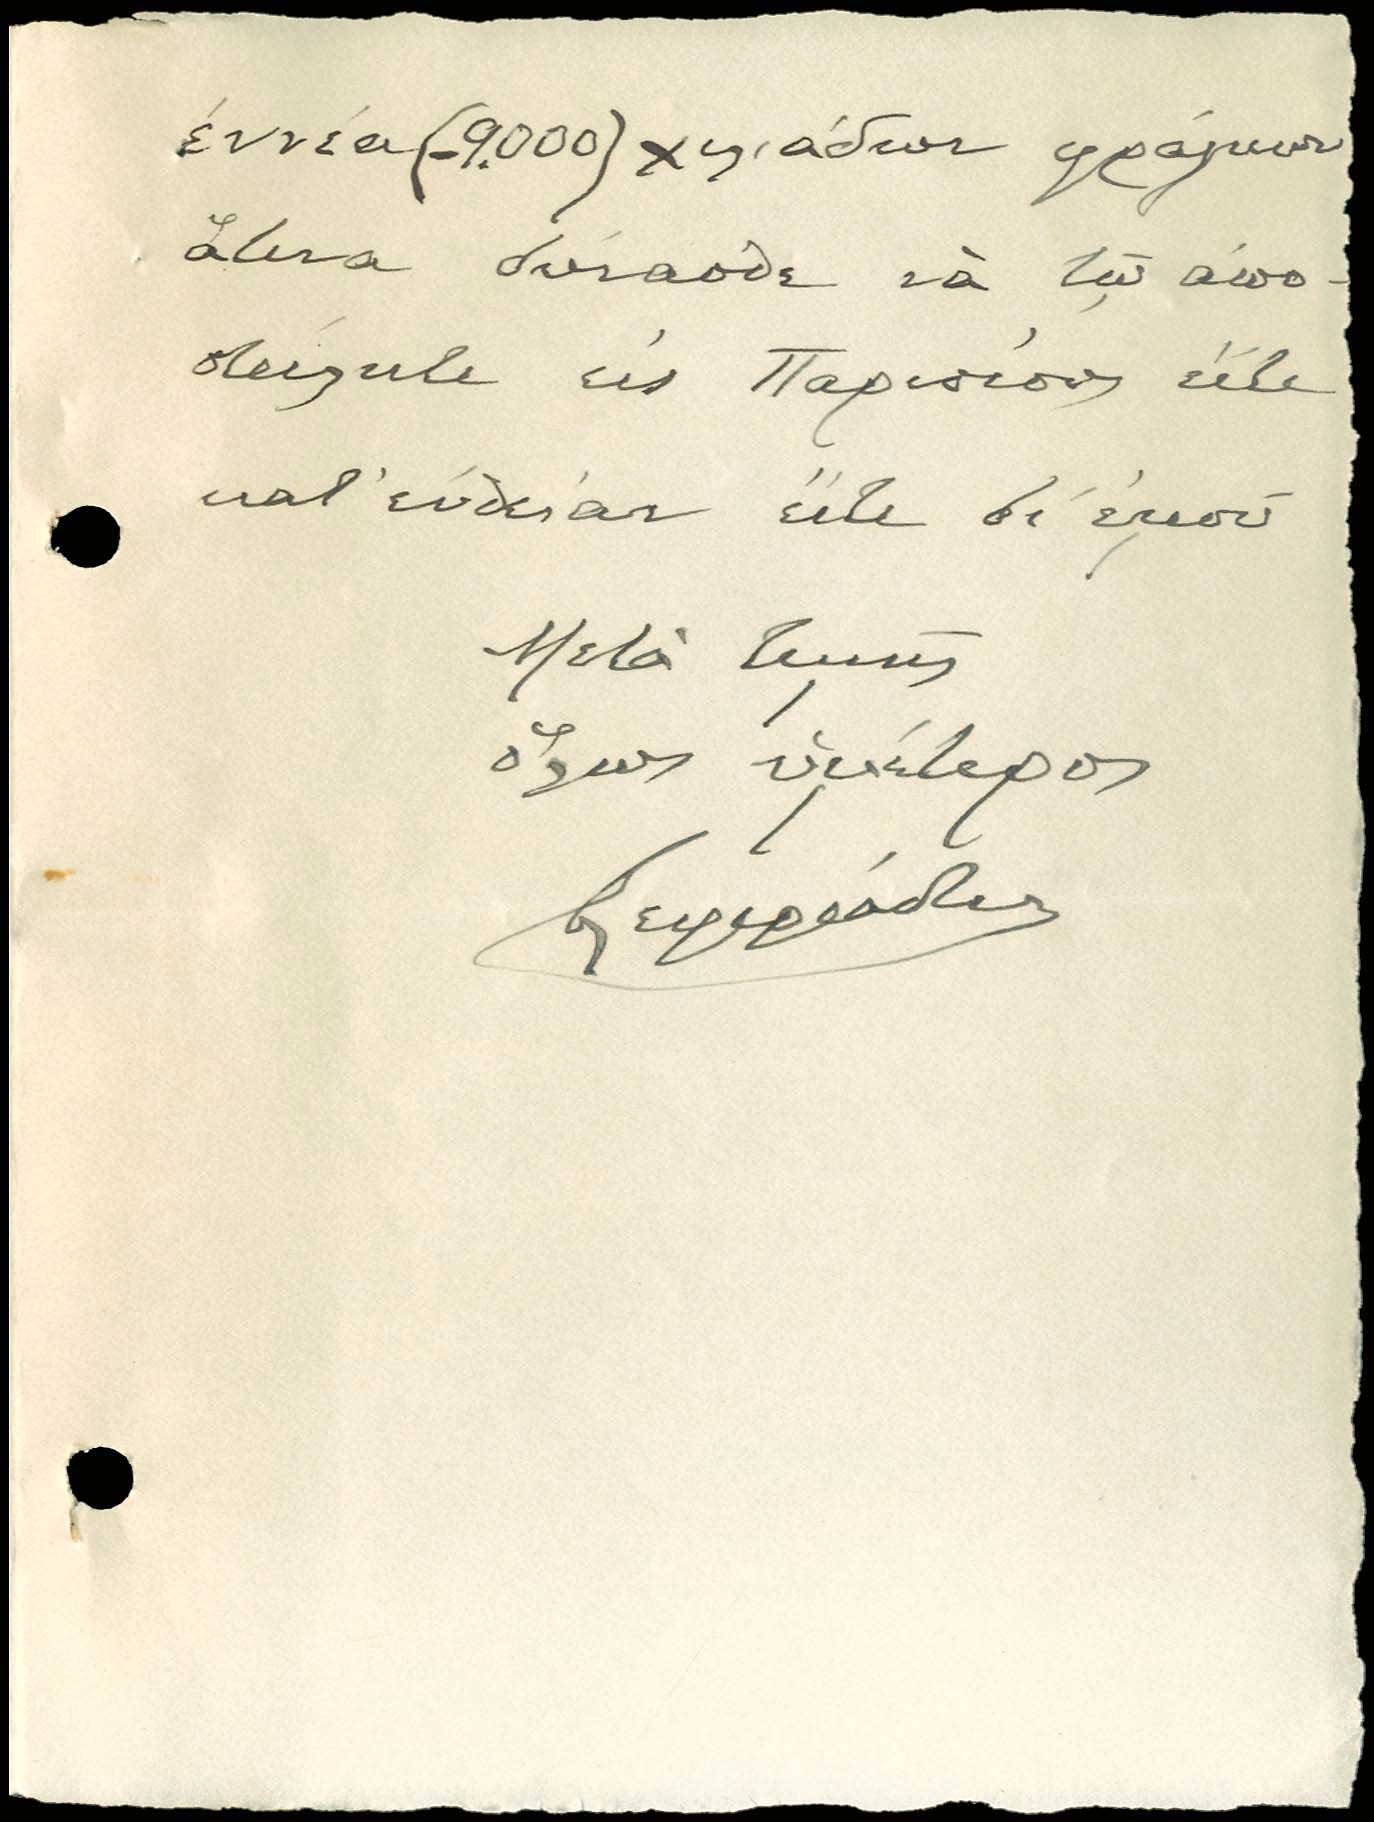 ἐννέα (-9.000) χιλιάδων φράγκων
ἅτινα δύνασθε νὰ τῷ ἀπο-
στείλητε εἰς Παρισίους εἴτε
κατ' εὐθεῖαν εἴτε δι' ἐμοῦ
Μετὰ τιμῆς
ὅλως ὑμέτερος